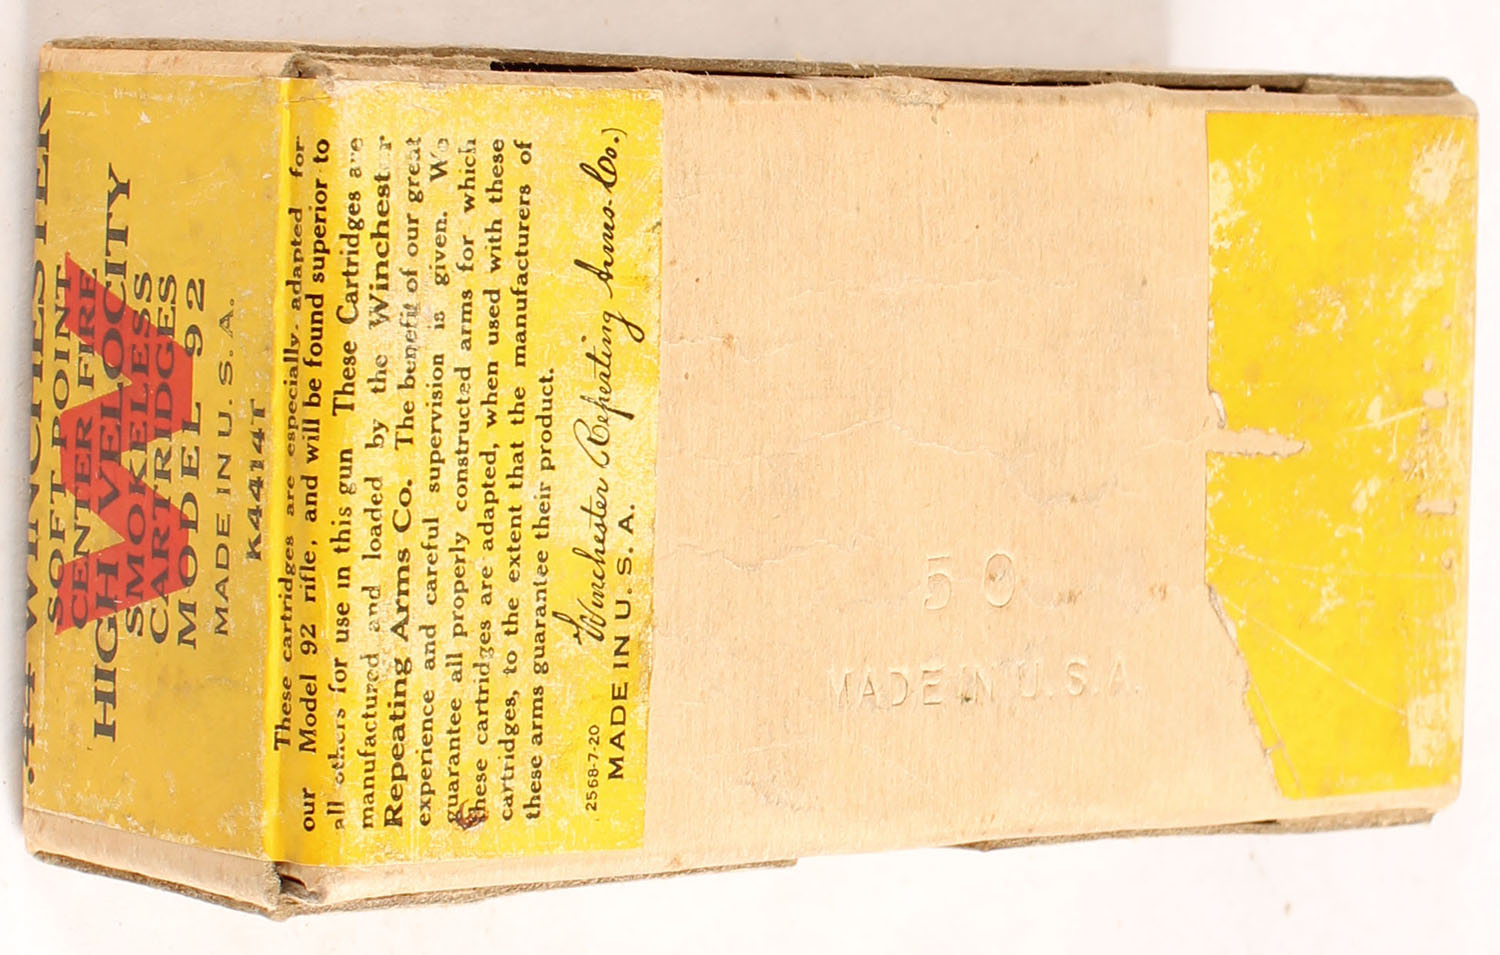 .44 WINCHESTER
SOFT POINT
CENTER FIRE
HIGH VELOCITY
SMOKELESS
CARTRIDGES
MODEL 92
MADE IN U.S.A.
K4414T
W
These cartridges are especially adapted for
our Model 92 rifle, and will be found superior to
all others for use in this gun These Cartridges are
manufactured and loaded by the Winchester
Repeating Arms Co. The benefit of our great
experience and careful supervision is given. We
guarantee all properly constructed arms for which
these cartridges are adapted, when used with these
cartridges, to the extent that the manufacturers of
these arms guarantee their product.
Winchester Repeating Arms Co.)
2568-7-20 MADE IN U.S.A.
50
MADE IN U.S.A.